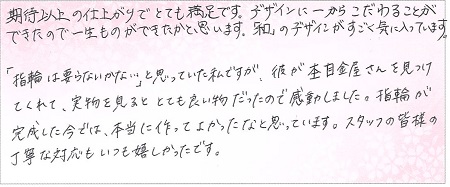 期待以上の仕上がりでとても満足です。デザインに一からこだわることが
できたので一生ものができたかと思います。「和」のデザインがすごく気に入っています。
「指輪は要らないかな…」と思っていた私ですが、彼が杢目金屋さんを見つけ
てくれて、実物を見るととても良い物だったので感動しました。指輪が
完成した今では、本当に作ってよかったなと思っています。スタッフの皆様の
丁寧な対応もいつも嬉しかったです。